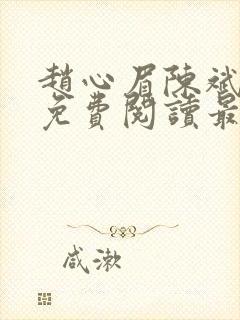 趙心眉陳斌
免費閱讀最
咸漱